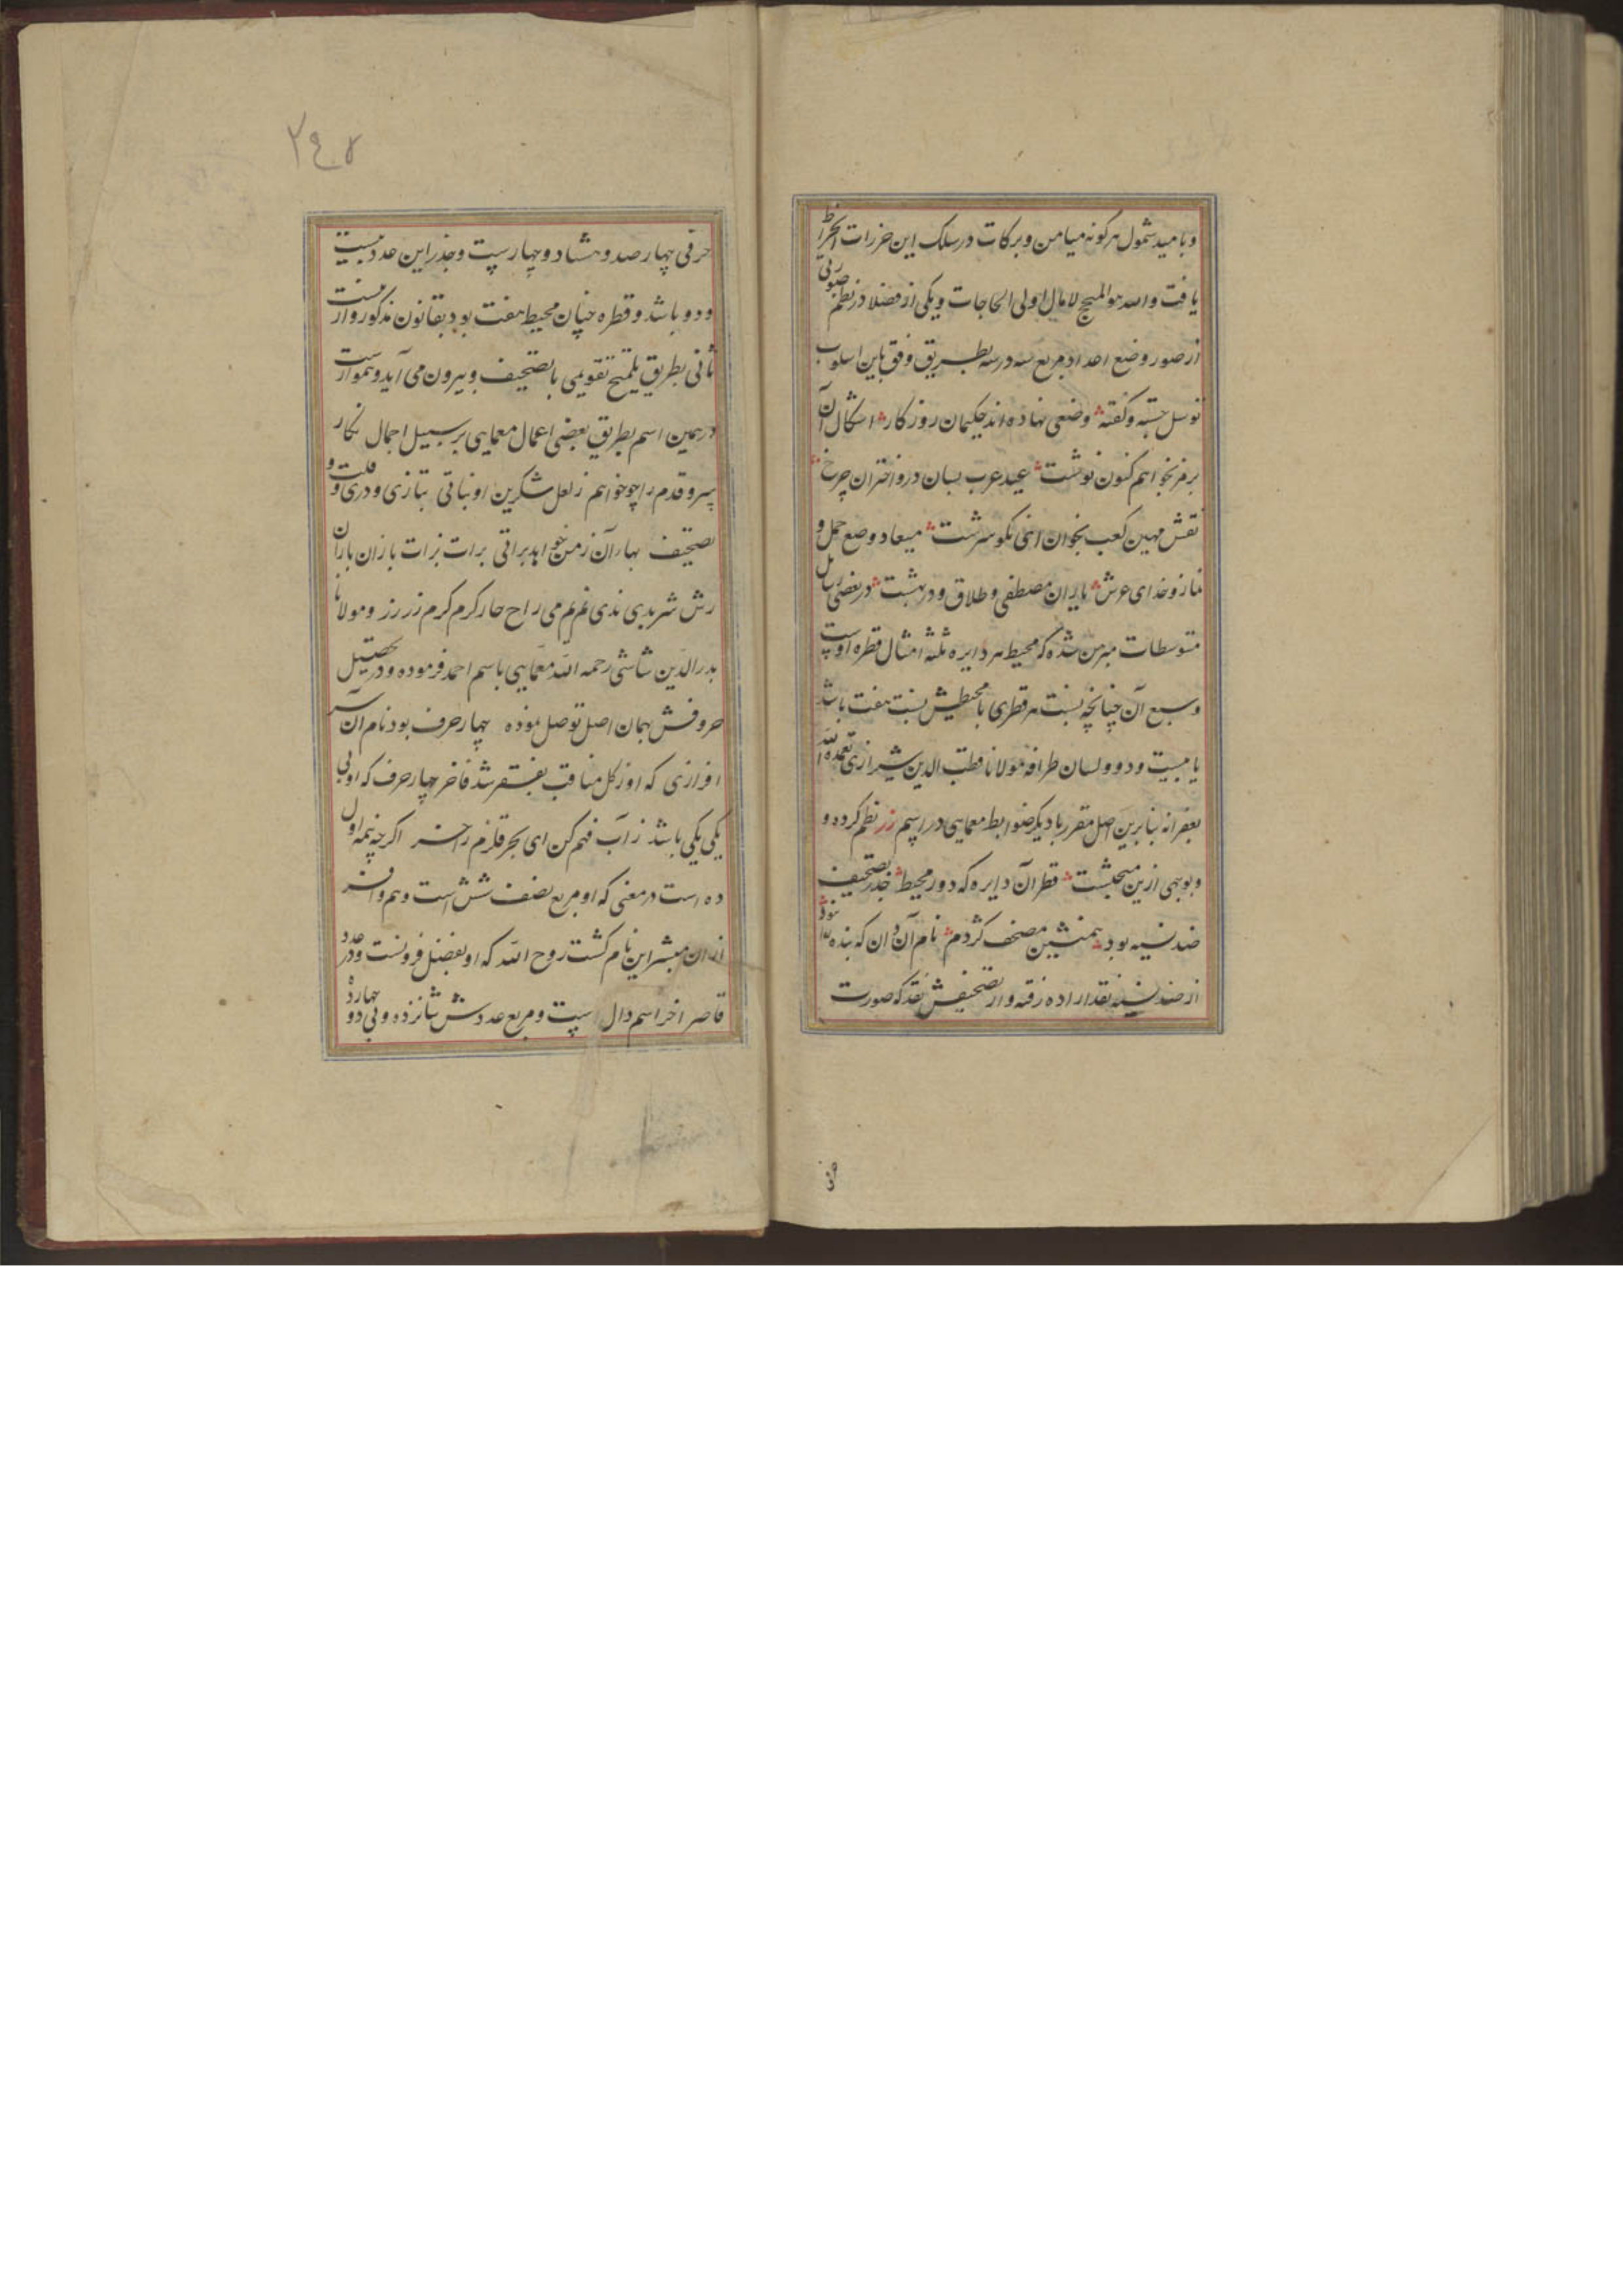 و بامید شمول هر گونه میامن و برکات در سلک این خزرات انخراط
یافت والله هو المنجح لامال اولی الحاجات و یکی از فضلا در نظم صورتی
از صور وضع اعداد مربع سه در سه بطریق وفق باین اسلوب
توسل جسته و گفته وضعی نهاده اند حکیمان روزگار اشکال آن
برمز بخواهم کنون نوشت عید عرب بسان در و اختران چرخ
نقش مهین کعب بخوان اخی نکو سرشت میعاد وضع حمل و
نماز و خدای عرش یاران مصطفی و طلاق و در بهشت در بعضی رسایل
متوسطات مبرهن شده که محیط هر دایره ثلثه امثال قطره اوست
و سبع آن چنانچه نسبت هر قطری با محیطش نسبت هفت باشد
یا بیست و دو و لسان طرافه مولانا قطب الدین شیرازی تغمده الله
بغفرانه بنا برین اصل مقرر با دیگر ضوابط معمایی در اسم زر نظم کرده و
و بوجهی ازین مبحثست قطر آن دایره که دور محیط جذر تصحیف
ضد نسیه بود همنشین مصحف کژدم نام آن دان که بنده
از ضد نسیه نقد اراده رفته و از تصحیفش نقد که صورت
حرفی چهار صد و هشتاد و چهارست و جذر این عدد بیست
و دو باشد و قطره چنان محیط هفت بود بقانون مذکور و از
ثانی بطریق تلمیح تقویمی با تصحیف و بیرون می آید و هموراست
در همین اسم بطریق بعضی اعمال معمایی بر سبیل اجمال نگار
سرو قدم را چو خواهم ز لعل شکرین او نباتی بتازی و دری و
تصحیف بهار آن ز من خواهد براتی برات نرات بازان باران
رش شر بدی ندی غم عم می راح حار کرم کرم زر رز و مولانا
بدر الدین شاشی رحمه الله معمایی باسم احمد فرموده و در تحصیل
حروفش بهمان اصل توصل نموده چهار حرف بود نام آن
افرازی که او ز کل مناقب بفقر شد فاخر چهار حرف که اولی
یکی یکی باشد ز آب فهم کن ای بحر قلزم زاخر اگر چه نیمه اول
ده است در معنی که او مربع نصف شش است و هم وافر
از ان مبشر این نام گشت روح الله که او بفضل فزونست و در عدد
قاصر اخر اسم دال است و مربع عددش شانزده و بی دو چهارده